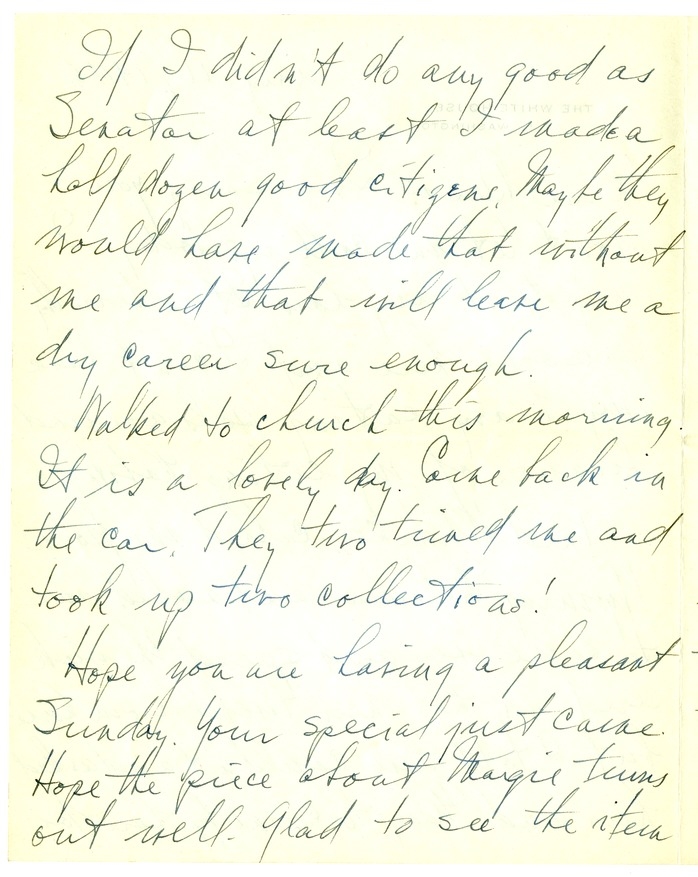 If I didn't do any good as
Senator at least I made a
half dozen good citizens. Maybe they
would have made that without
me and that will leave me a
dry career sure enough.
Walked to church this morning.
It is a lovely day. Came back in
the car. They two timed me and
took up two collections!
Hope you are having a pleasant
Sunday. Your special just came.
Hope the piece about Margie turns
out well. Glad to see the item